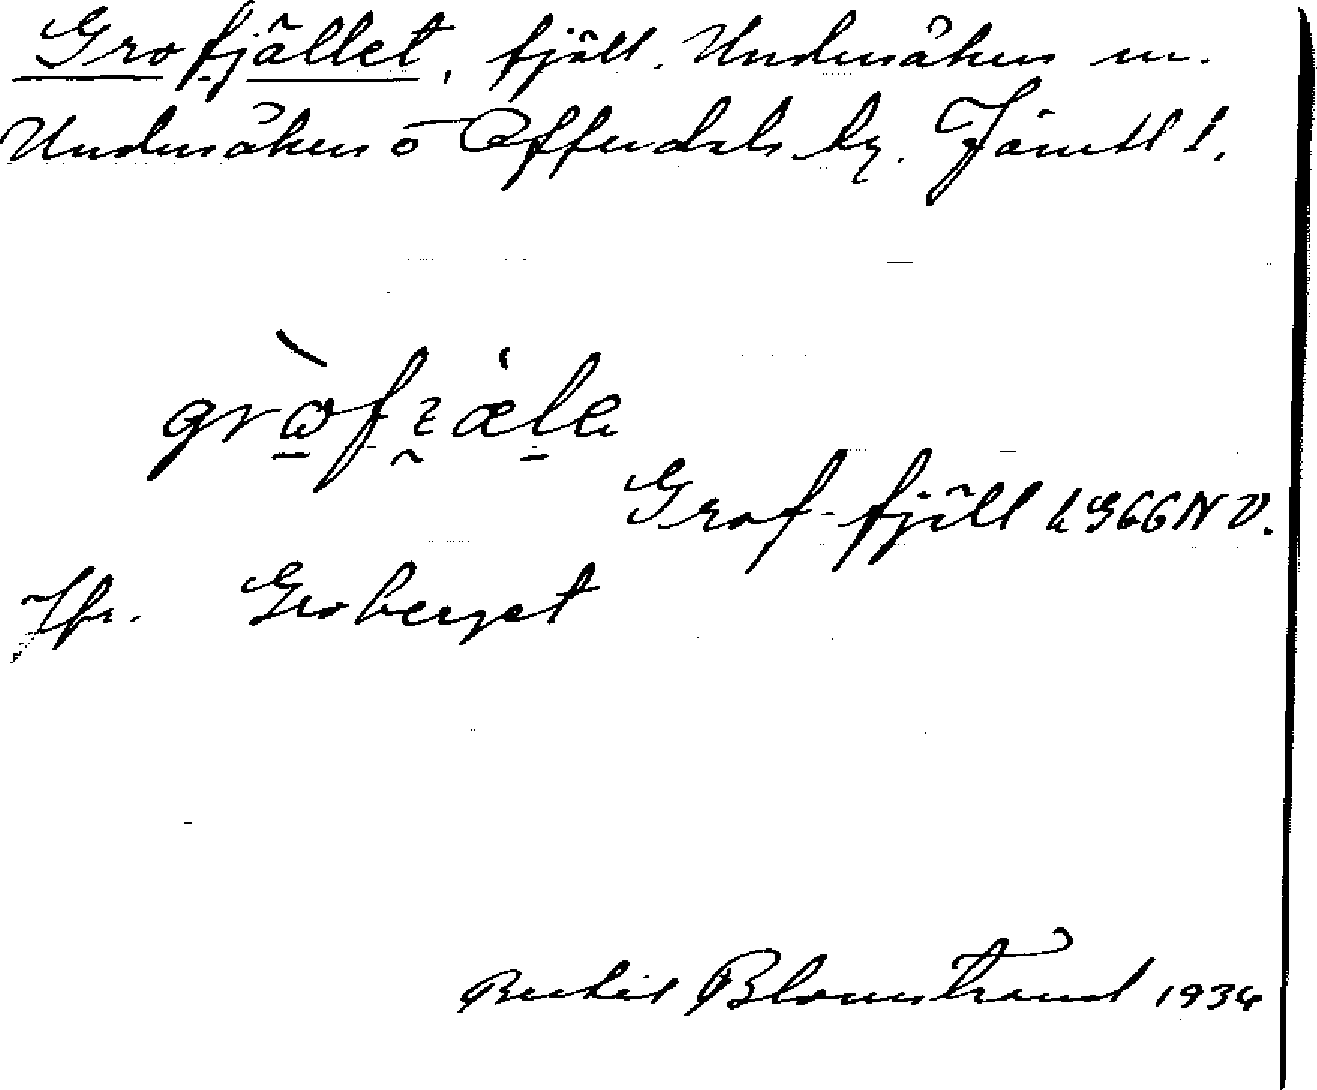 Grofjället, fjäll. Undersåkers sn.
Undersåkers o Offerdals tg. Jämtl l.
gròfʐæla
Grof-fjäll k G66NV.
Jfr. Groberget
Bertil Blomstrand 1934